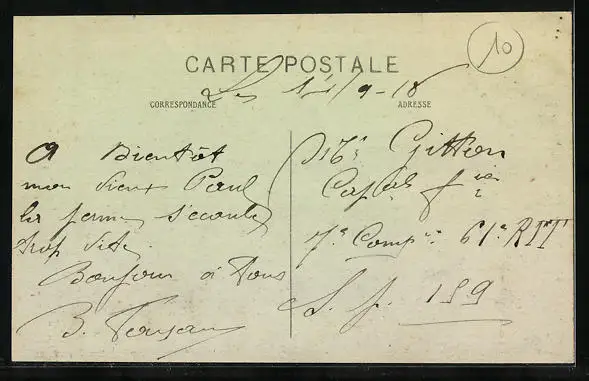 10
CARTE POSTALE
Les 1er/9-18
CORRESPONDANCE
ADRESSE
A Bientôt
mon vieux Paul
les s'ecoule
trop vite.
Bonjour à Tous
B.
Mr Gitton
Capal f
7e Compie 61e RIT
S. p. 189